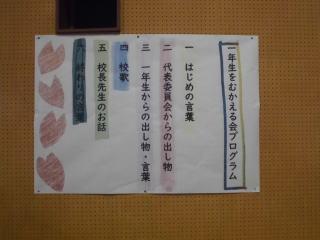 一年生をむかえる会プログラム
一 はじめの言葉
二 代表委員会からの出し物
三 一年生からの出し物・言葉
四 校歌
五 校長先生のお話
六 終わりの言葉